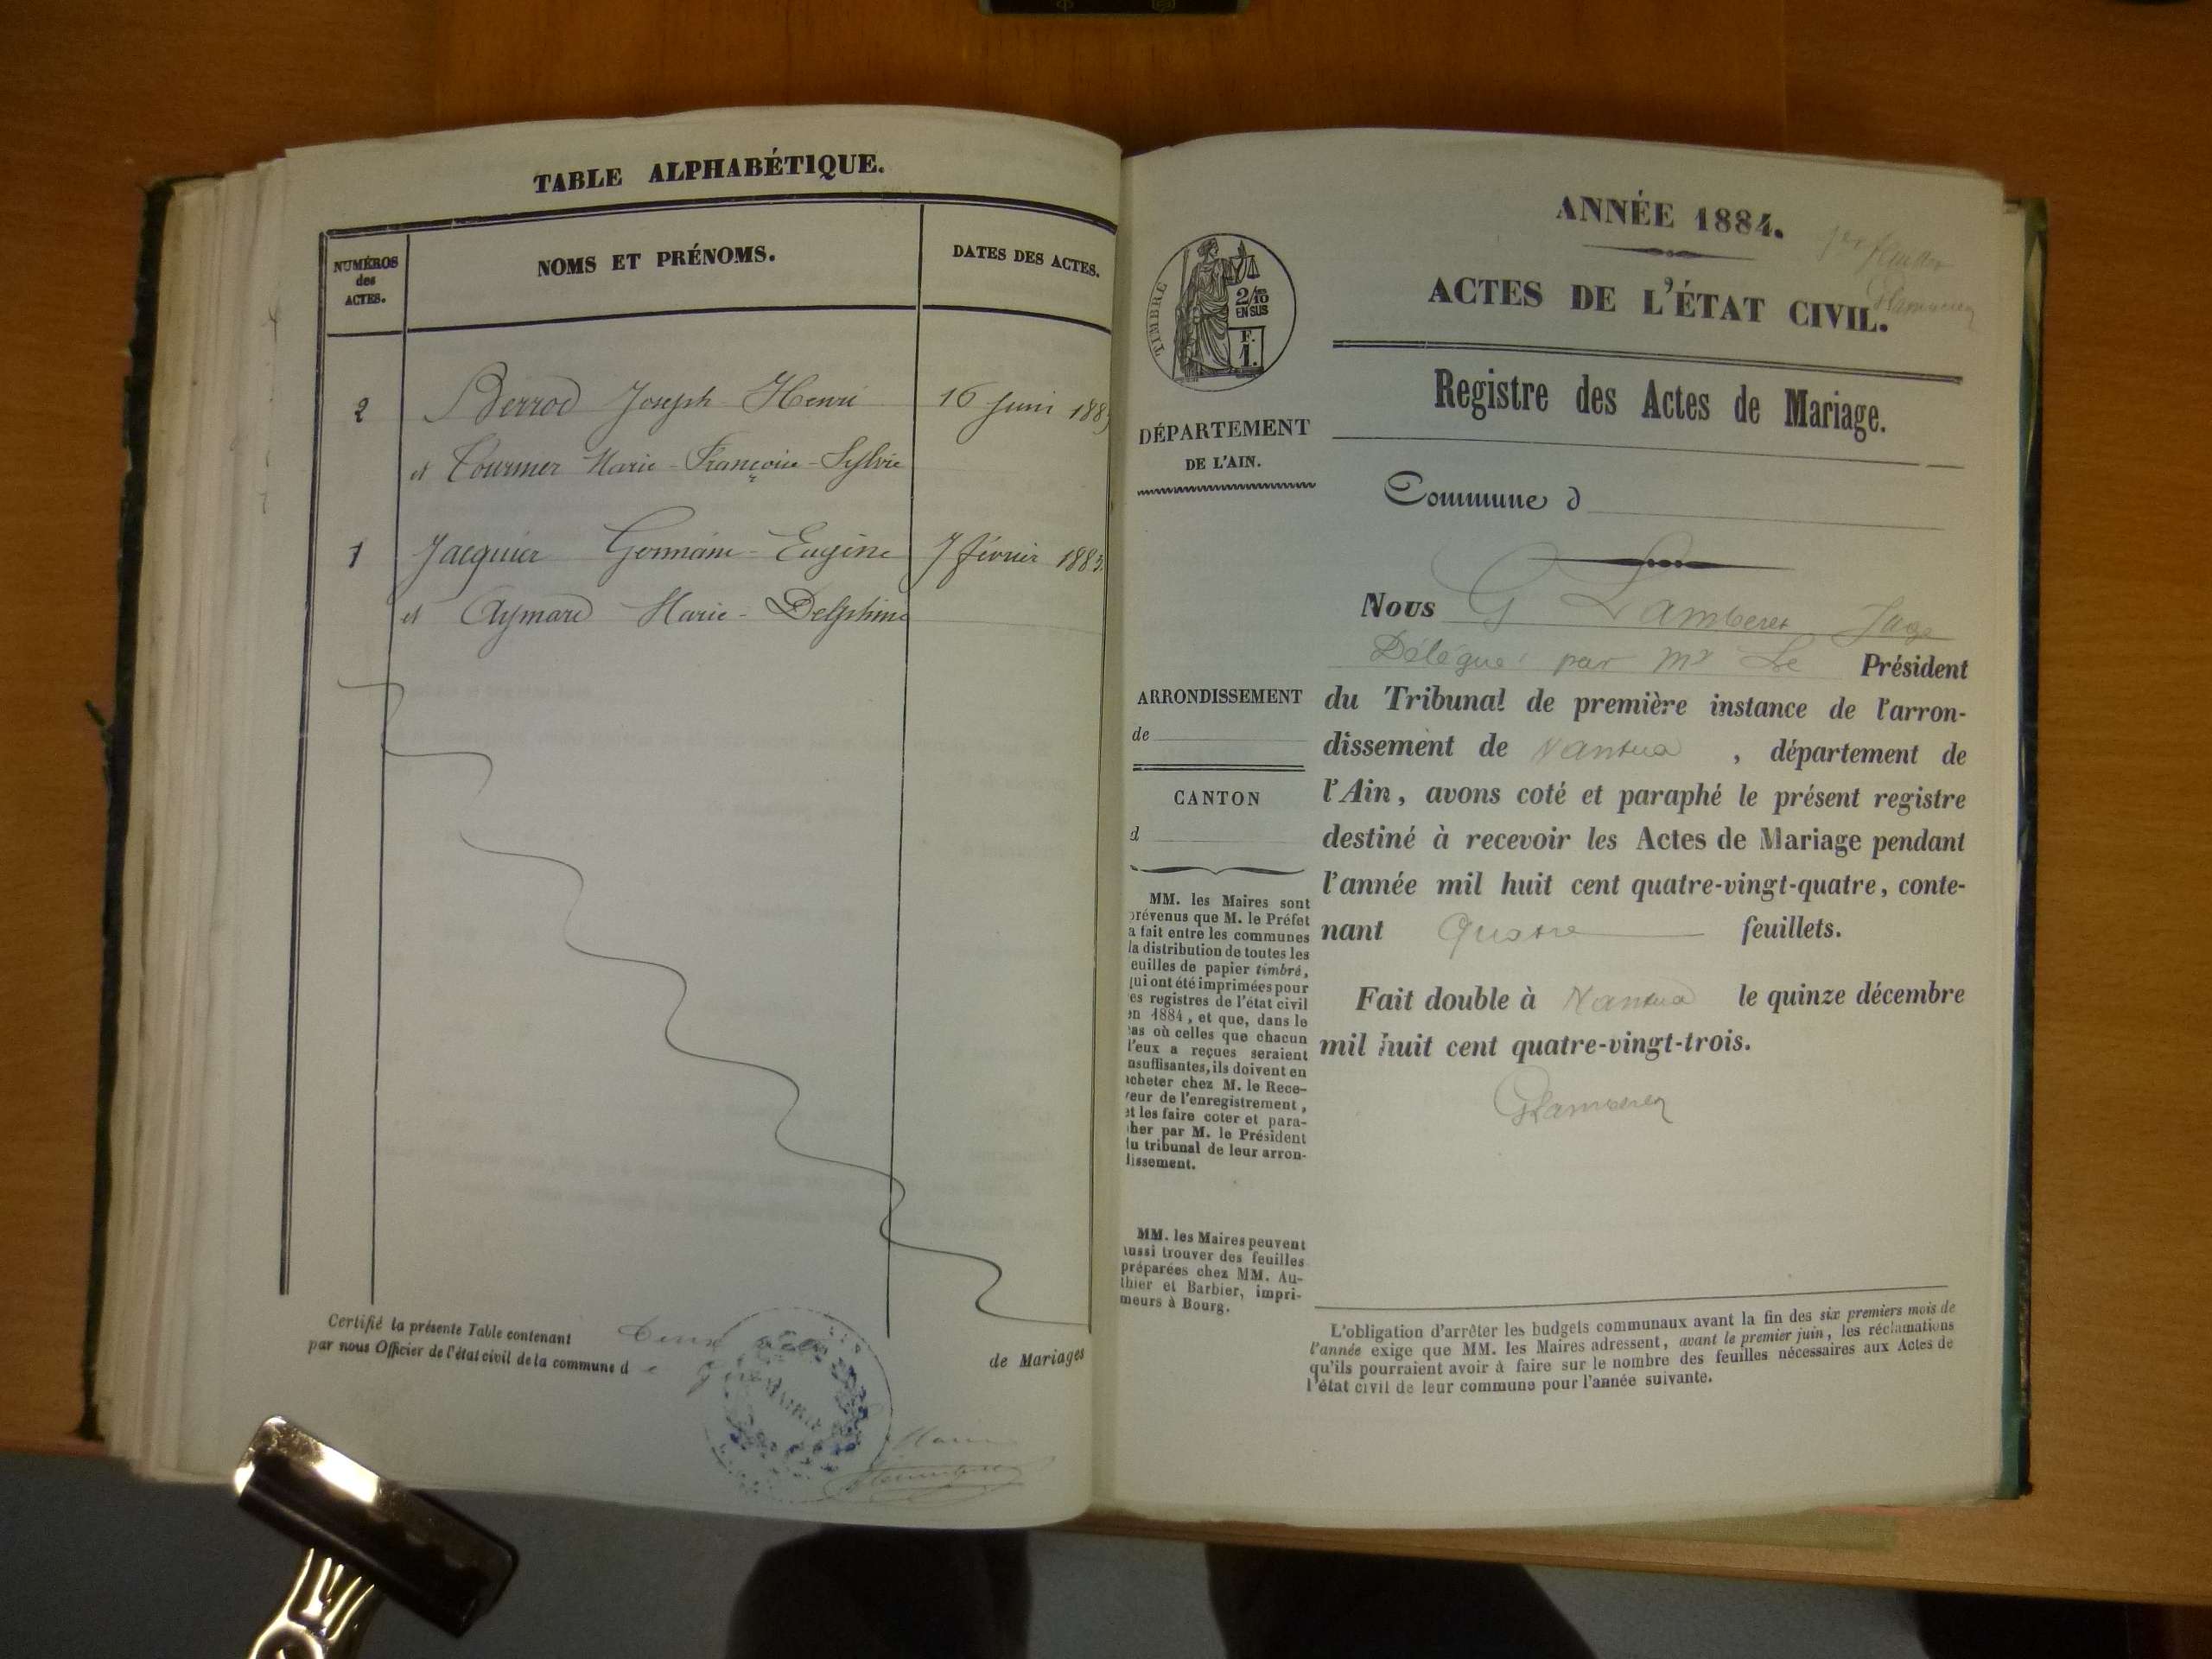 TABLE ALPHABÉTIQUE.
NUMÉROS
des
ACTES.
NOMS ET PRÉNOMS.
DATES DES ACTES.
2 Berrod Joseph Henri 16 Juin 188
et Tournier Marie-Françoise-Sylvie
1 Jacquier Germain-Eugène 7 février 1883
et Aymard Marie-Delphine
Certifié la présente Table contenant deux actes de Mariages
par nous Officier de l'état civil de la commune d
MAIRIE
ANNÉE 1884.
ACTES DE L'ÉTAT CIVIL.
Registre des Actes de Mariage.
TIMBRE
2/10
EN SUS
F.
1.
DÉPARTEMENT
DE L'AIN.
ARRONDISSEMENT
de
CANTON
d
MM. les Maires sont
prévenus que M. le Préfet
a fait entre les communes
la distribution de toutes les
euilles de papier timbré,
qui ont été imprimées pour
es registres de l'état civil
en 1884, et que, dans le
as où celles que chacun
d'eux a reçues seraient
nsuffisantes, ils doivent en
acheter chez M. le Rece-
veur de l'enregistrement,
et les faire coter et para-
pher par M. le Président
du tribunal de leur arron-
dissement.
MM. les Maires peuvent
aussi trouver des feuilles
préparées chez MM. Au-
thier et Barbier, impri-
meurs à Bourg.
Commune d
Nous G Lamberet Juge
Délégué par Mr Le Président
du Tribunal de première instance de l'arron-
dissement de Nantua, département de
l'Ain, avons coté et paraphé le présent registre
destiné à recevoir les Actes de Mariage pendant
l'année mil huit cent quatre-vingt-quatre, conte-
nant Quatre feuillets.
Fait double à Nantua le quinze décembre
mil huit cent quatre-vingt-trois.
L'obligation d'arrêter les budgets communaux avant la fin des six premiers mois de
l'année exige que MM. les Maires adressent, avant le premier juin, les réclamations
qu'ils pourraient avoir à faire sur le nombre des feuilles nécessaires aux Actes de
l'état civil de leur commune pour l'année suivante.